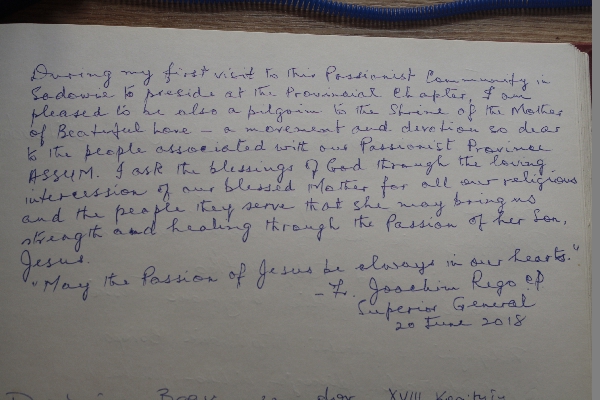 During my first visit to this Passionist Community in
Sadowie to preside at the Provincial Chapter, I am
pleased to be also a pilgrim to the Shrine of the Mother
of Beautiful Love – a movement and devotion so dear
to the people associated with our Passionist Province
ASSUM. I ask the blessings of God through the loving
intercession of our blessed Mother for all our religious
and the people they serve that she may bring us
strength and healing through the Passion of her Son,
Jesus.
"May the Passion of Jesus be always in our hearts."
– Fr. Joachim Rego CP
Superior General
20 June 2018
XVIII